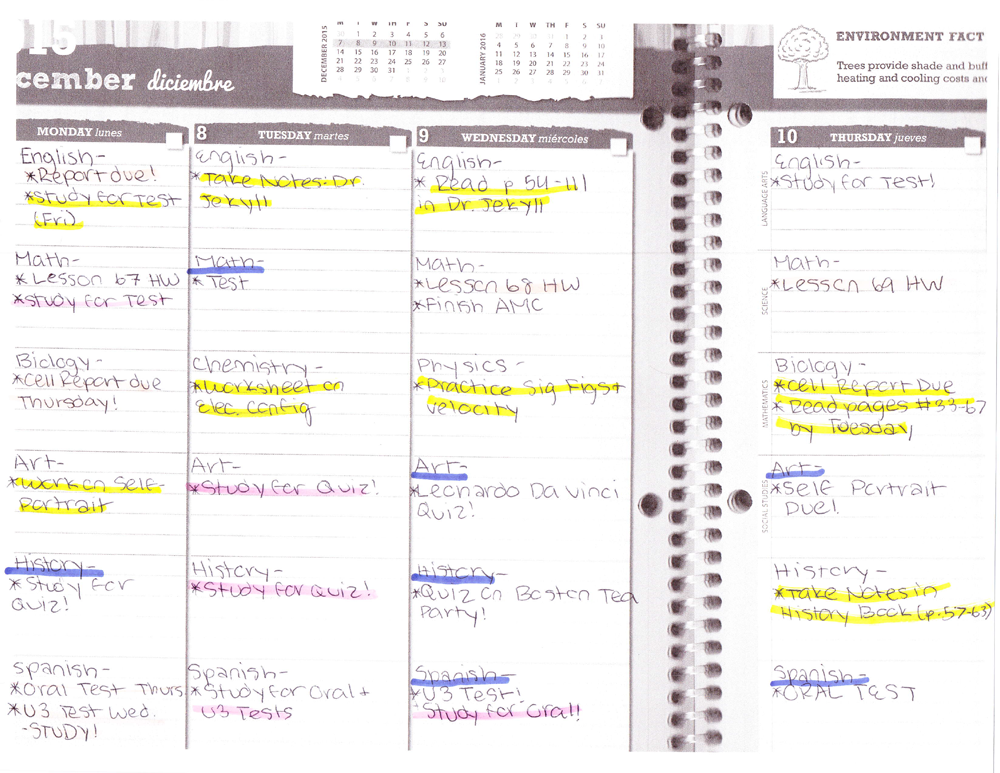 15
cember diciembre
DECEMBER 2015
M T W TH F S S
7 8 9 10 11 12 13
14 15 16 17 18 19 20
21 22 23 24 25 26 27
28 29 30 31
JANUARY 2016
M T W TH F S SU
1 2 3
4 5 6 7 8 9 10
11 12 13 14 15 16 17
18 19 20 21 22 23 24
25 26 27 28 29 30 31
ENVIRONMENT FACT
Trees provide shade and buff
heating and cooling costs and
MONDAY lunes
English-
*Report due!
*Study for Test
(Fri)
Math-
*Lesson 67 HW
*Study for Test
Biology-
*Cell Report due
Thursday!
Art-
*Work on Self-
Portrait
History-
*Study for
Quiz!
Spanish-
*Oral Test Thurs
*U3 Test Wed.
-STUDY!
8 TUESDAY martes
English-
*Take Notes: Dr.
Jekyll
Math-
*Test
Chemistry-
*Worksheet on
Elec. Config
Art-
*Study for Quiz!
History-
*Study for Quiz!
Spanish-
*Study for Oral +
U3 Tests
9 WEDNESDAY miércoles
English-
* Read p 54-111
in Dr. Jekyll
Math-
*Lesson 68 HW
*Finish AMC
Physics-
*Practice Sig Figs +
Velocity
Art-
*Leonardo Da Vinci
Quiz!
History-
*Quiz on Boston Tea
Party!
Spanish-
*U3 Test!
*Study for Oral!
10 THURSDAY jueves
LANGUAGE ARTS
English-
*Study for Test!
SCIENCE
Math-
*Lesson 69 HW
MATHEMATICS
Biology-
*Cell Report Due
*Read pages #33-67
by Tuesday
SOCIAL STUDIES
Art-
*Self Portrait
Due!
History-
*Take Notes in
History Book (p.57-63)
Spanish-
*ORAL TEST